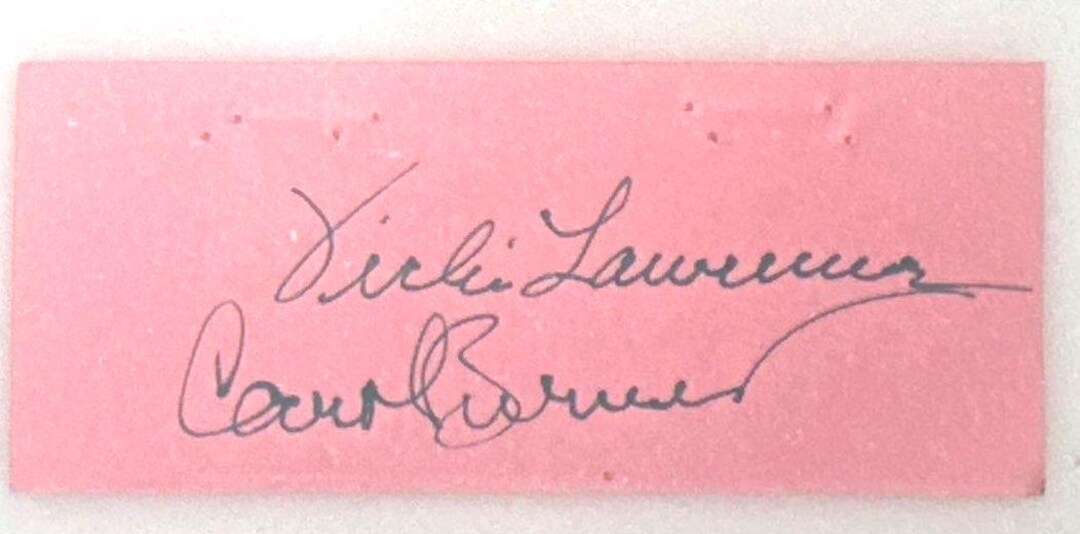 Vicki Lawrence
Carol Burnett